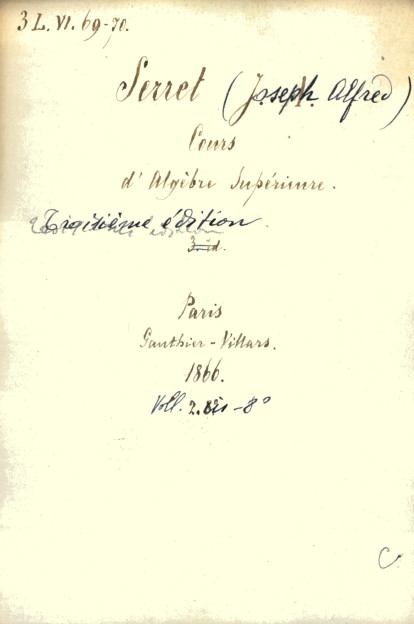 3 L. VI. 69-70.
Serret (Joseph Alfred)
Cours
d'Algèbre Supérieure.
Troisième édition.
3. éd.
Paris
Gauthier-Villars.
1866.
Voll. 2. -8°
C